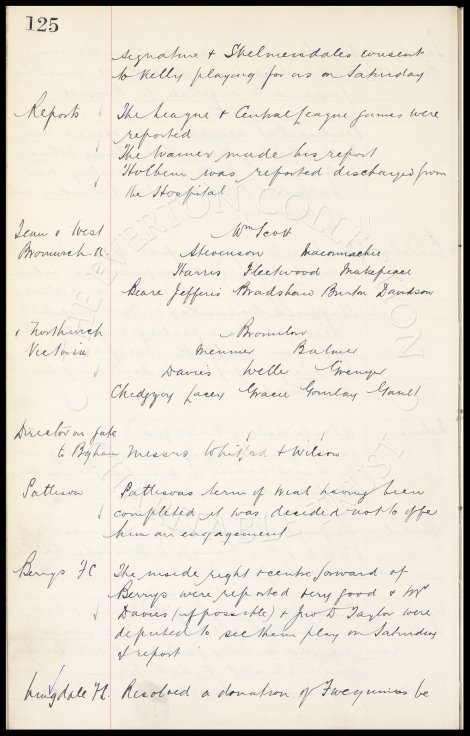 125
signature & Skelmersdales consent
to Kelly playing for us on Saturday
Reports The League & Central League games were
reported
The trainer made his report
Holbem was reported discharged from
the Hospital
Team v West Wm Scott
Bromwich A. Stevenson Maconnachie
Harris Fleetwood Makepeace
Beare Jefferis Bradshaw Burton Davidson
v Northwich Bromilow
Victoria Meunier Balmer
Davies Weller Grenyer
Chedgzoy Lacey Gracie Gourlay Gault
Director on gate
to Byham Messrs Whitford & Wilson
Pattison Pattisons term of trial having been
completed it was decided not to offer
him an engagement
Berrys FC The inside right & centre forward of
Berrys were reported very good & Mr
Davies (if possible) & Jno D Taylor were
deputed to see them play on Saturday
& report
Resolved a donation of Two guineas be
THE EVERTON COLLECTION CHARITABLE TRUST